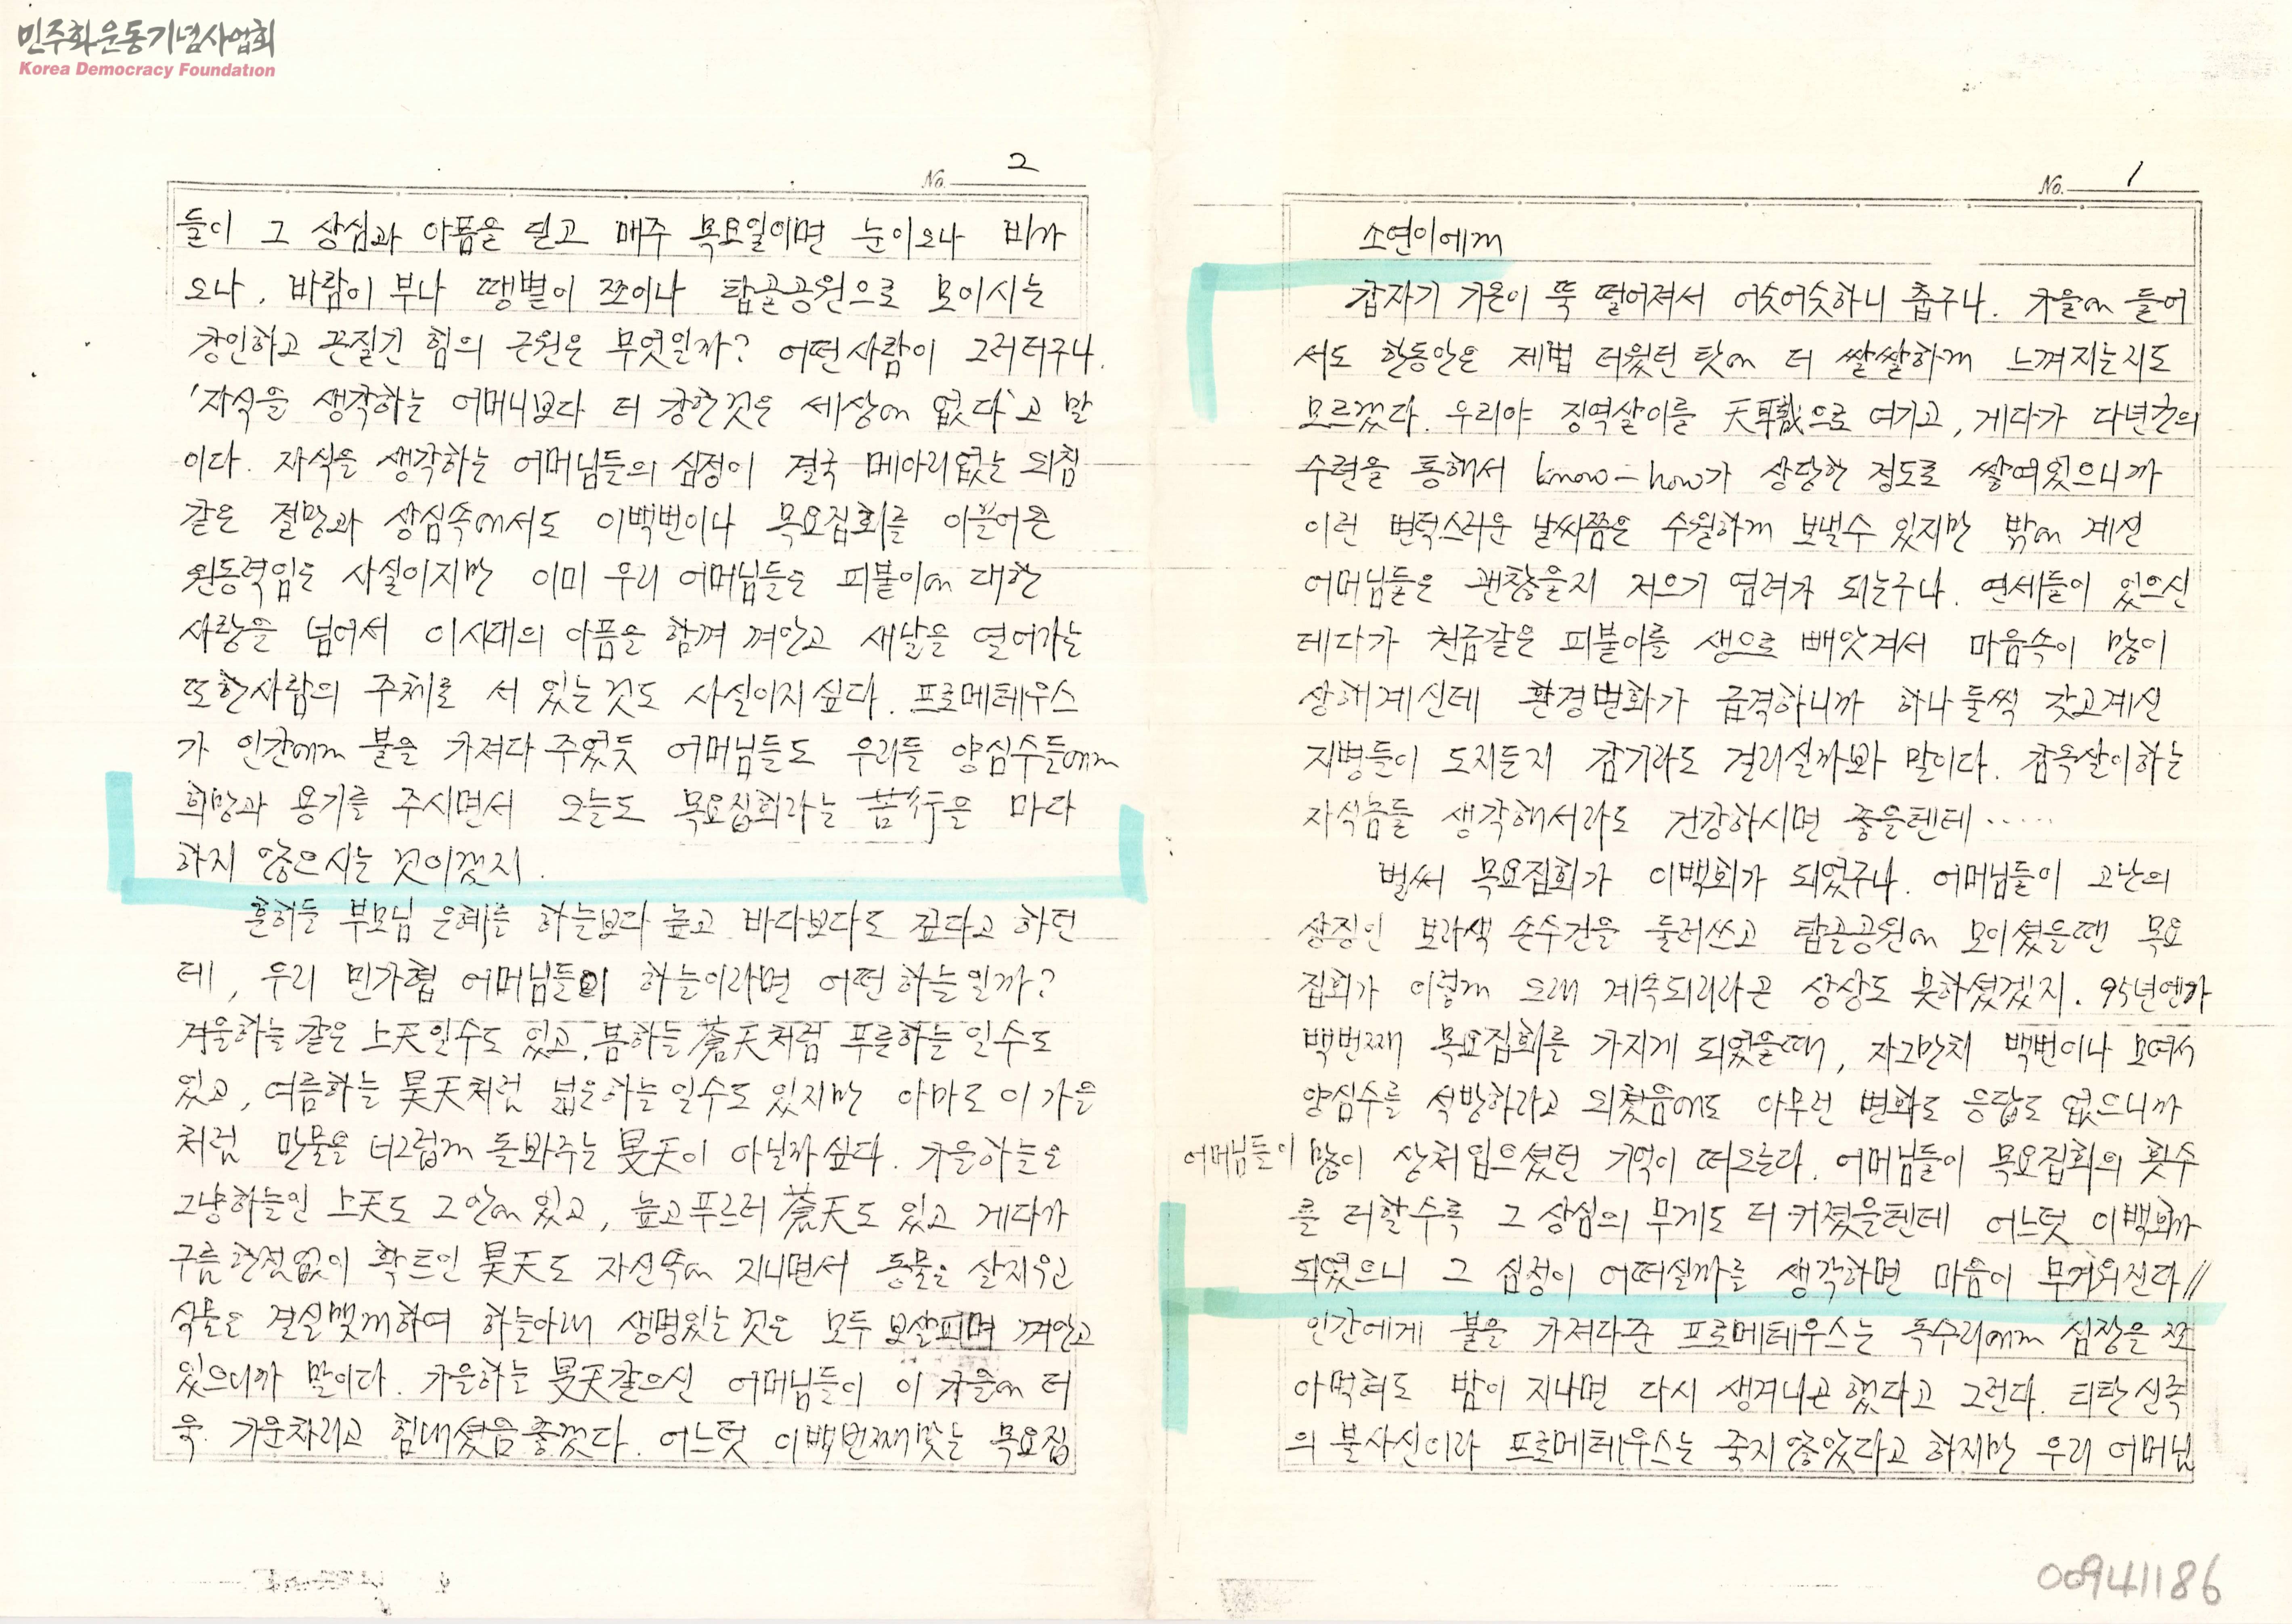 민주화운동기념사업회
Korea Democracy Foundation
No. 1
소연이에게
갑자기 기온이 뚝 떨어져서 어슷어슷하니 춥구나. 가을에 들어
서도 한동안은 제법 더웠던 탓에 더 쌀쌀하게 느껴지는지도
모르겠다. 우리야 징역살이를 天職으로 여기고, 게다가 다년간의
수련을 통해서 know-how가 상당한 정도로 쌓여있으니까
이런 변덕스러운 날씨쯤은 수월하게 보낼수 있지만 밖에 계신
어머님들은 괜찮을지 저으기 염려가 되는구나. 연세들이 있으신
데다가 천금같은 피붙이를 생으로 빼앗겨서 마음속이 많이
상해계신데 환경변화가 급격하니까 하나둘씩 갖고계신
지병들이 도지든지 감기라도 걸리실까봐 말이다. 감옥살이하는
자식놈들 생각해서라도 건강하시면 좋을텐데 ·····
벌써 목요집회가 이백회가 되었구나. 어머님들이 고난의
상징인 보라색 손수건을 둘러쓰고 탑골공원에 모이셨을땐 목요
집회가 이렇게 오래 계속되리라곤 상상도 못하셨겠지. 95년엔가
백번째 목요집회를 가지게 되었을때, 자그만치 백번이나 모여서
양심수를 석방하라고 외쳤음에도 아무런 변화도 응답도 없으니까
어머님들이 많이 상처입으셨던 기억이 떠오른다. 어머님들이 목요집회의 횟수
를 더할수록 그 상심의 무게도 더 커졌을텐데 어느덧 이백회가
되었으니 그 심정이 어떠실까를 생각하면 마음이 무거워진다//
인간에게 불을 가져다준 프로메테우스는 독수리에게 심장을 쪼
아먹혀도 밤이 지나면 다시 생겨나곤 했다고 그런다. 티탄 신족
의 불사신이라 프로메테우스는 죽지 않았다고 하지만 우리 어머님
No. 2
들이 그 상심과 아픔을 딛고 매주 목요일이면 눈이오나 비가
오나, 바람이 부나 땡볕이 쪼이나 탑골공원으로 모이시는
강인하고 끈질긴 힘의 근원은 무엇일까? 어떤사람이 그러더구나.
'자식을 생각하는 어머니보다 더 강한것은 세상에 없다'고 말
이다. 자식을 생각하는 어머님들의 심정이 결국 메아리없는 외침
같은 절망과 상심속에서도 이백번이나 목요집회를 이끌어온
원동력임은 사실이지만 이미 우리 어머님들은 피붙이에 대한
사랑을 넘어서 이시대의 아픔을 함께 껴안고 새날을 열어가는
또한사람의 주체로 서 있는것도 사실이지싶다. 프로메테우스
가 인간에게 불을 가져다 주었듯 어머님들도 우리들 양심수들에게
희망과 용기를 주시면서 오늘도 목요집회라는 苦行을 마다
하지 않으시는 것이겠지.
흔히들 부모님 은혜를 하늘보다 높고 바다보다도 깊다고 하던
데, 우리 민가협 어머님들이 하늘이라면 어떤하늘일까?
겨울하늘 같은 上天일수도 있고, 봄하늘 蒼天처럼 푸른하늘일수도
있고, 여름하늘 昊天처럼 넓은하늘일수도 있지만 아마도 이 가을
처럼 만물을 너그럽게 돌봐주는 旻天이 아닐까싶다. 가을하늘은
그냥하늘인 上天도 그안에 있고, 높고푸르러 蒼天도 있고 게다가
구름한점없이 확트인 昊天도 자신속에 지니면서 동물은 살지우고
식물은 결실맺게하여 하늘아래 생명있는 것은 모두 보살피며 껴안고
있으니까 말이다. 가을하늘 旻天같으신 어머님들이 이 가을에 더
욱 기운차리고 힘내셨음좋겠다. 어느덧 이백번째맞는 목요집
00941186